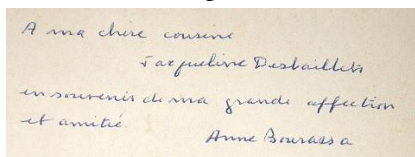 A ma chère cousine
Jacqueline Desbaillets
en souvenir de ma grande affection
et amitié.
Anne Bourassa